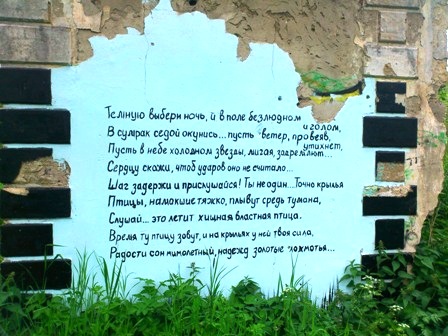 Тёмную выбери ночь, и в поле безлюдном
и голом,
В сумрак седой окунись... пусть ветер, провеяв,
утихнет,
Пусть в небе холодном звезды, мигая, задремлют...
Сердцу скажи, чтоб ударов оно не считало...
Шаг задержи и прислушайся! Ты не один... Точно крылья
Птицы, намокшие тяжко, плывут средь тумана,
Слушай... это летит хищная властная птица.
Время ту птицу зовут, и на крыльях у ней твоя сила,
Радости сон мимолетный, надежд золотые лохмотья...